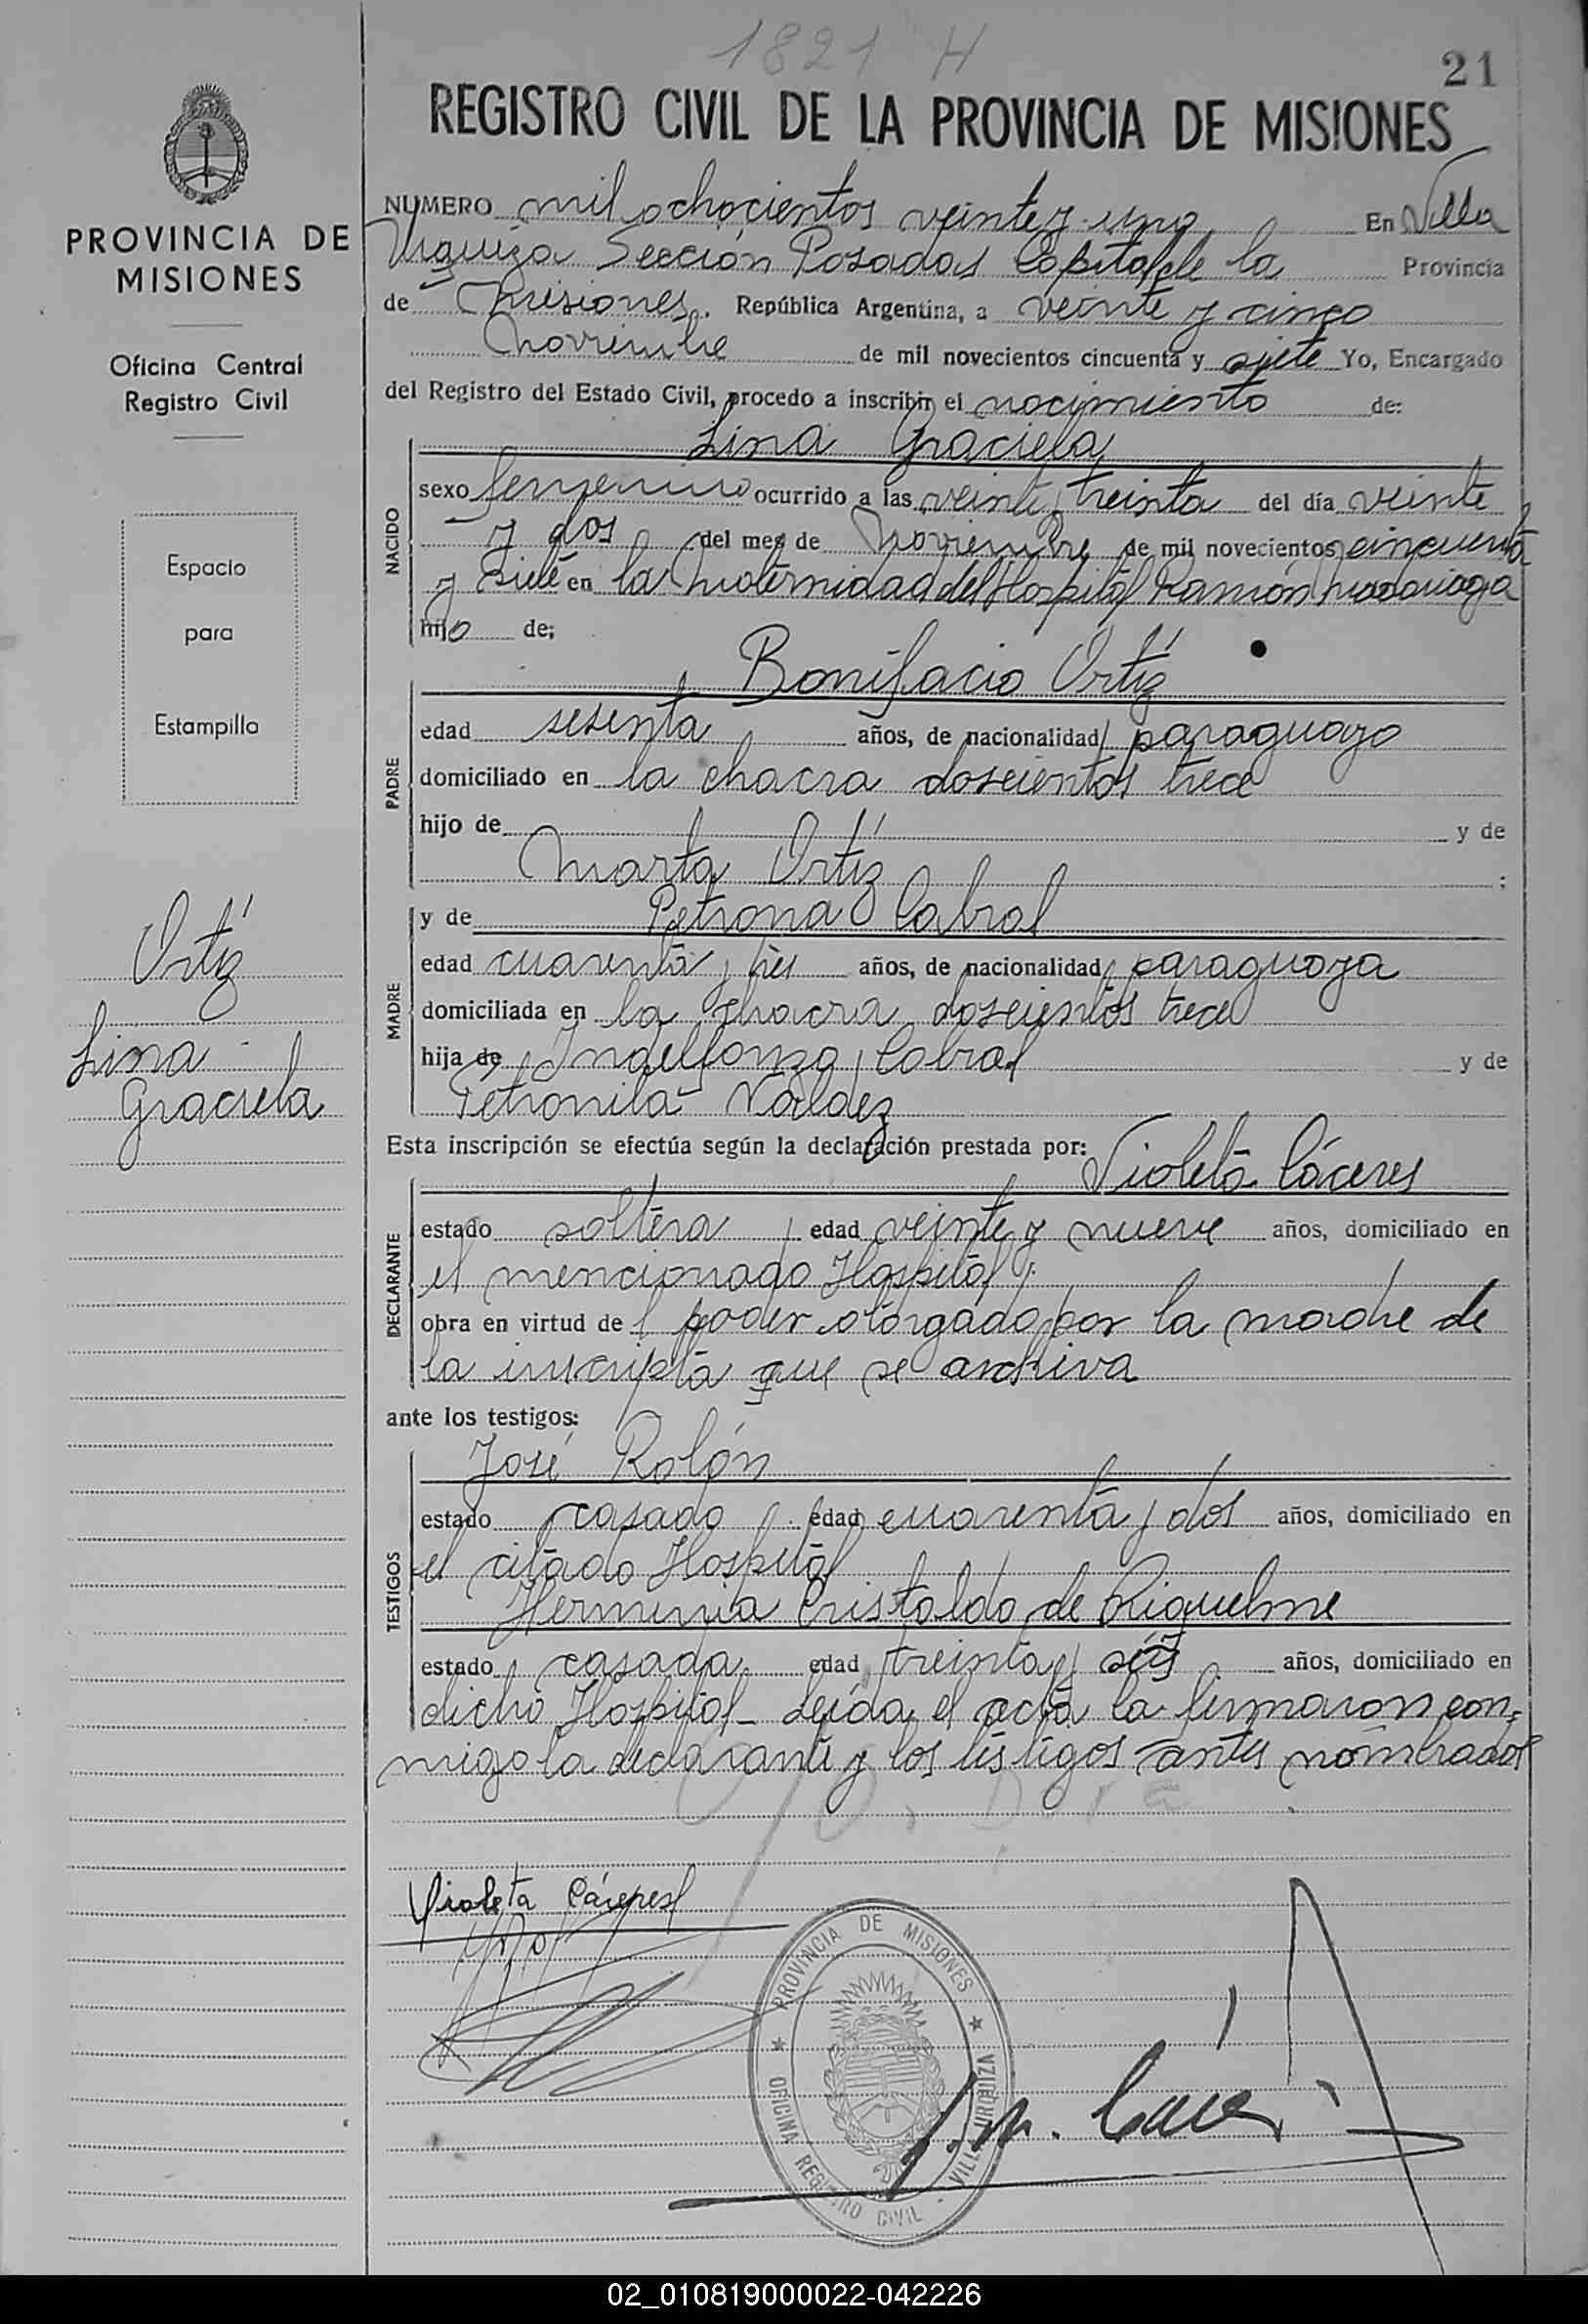 1821 H
21
REGISTRO CIVIL DE LA PROVINCIA DE MISIONES
PROVINCIA DE
MISIONES
Oficina Central
Registro Civil
Espacio
para
Estampilla
Ortíz
Lina
Graciela
NUMERO mil ochocientos veinte y uno En Villa
Urquiza Sección Posadas Capital de la Provincia
de Misiones. República Argentina, a veinte y cinco
Noviembre de mil novecientos cincuenta y siete Yo, Encargado
del Registro del Estado Civil, procedo a inscribir el nacimiento de:
Lina Graciela
NACIDO
sexo femenino ocurrido a las veinte y treinta del día veinte
y dos del mes de Noviembre de mil novecientos cincuenta
y siete en la Maternidad del Hospital Ramón Madariaga
hijo de;
Bonifacio Ortíz
PADRE
edad sesenta años, de nacionalidad paraguayo
domiciliado en la chacra doscientos trece
hijo de y de
Marta Ortíz ;
MADRE
y de Petrona Cabral
edad cuarenta y tres años, de nacionalidad paraguaya
domiciliada en la chacra doscientos trece
hija de Indelfonzo Cabral y de
Petronila Valdez
Esta inscripción se efectúa según la declaración prestada por:
Violeta Cáceres
DECLARANTE
estado soltera edad veinte y nueve años, domiciliado en
el mencionado Hospital
obra en virtud del poder otorgado por la madre de
la inscripta que se archiva
ante los testigos:
José Rolón
TESTIGOS
estado casado edad cuarenta y dos años, domiciliado en
el citado Hospital
Herminia Cristaldo de Riquelme
estado casada edad treinta y seis años, domiciliado en
dicho Hospital - Leída el acta la firmaron con-
migo la declarante y los testigos antes nombrados
Violeta Cáceres
PROVINCIA DE MISIONES
OFICINA REGISTRO CIVIL - VILLA URQUIZA
02_010819000022-042226